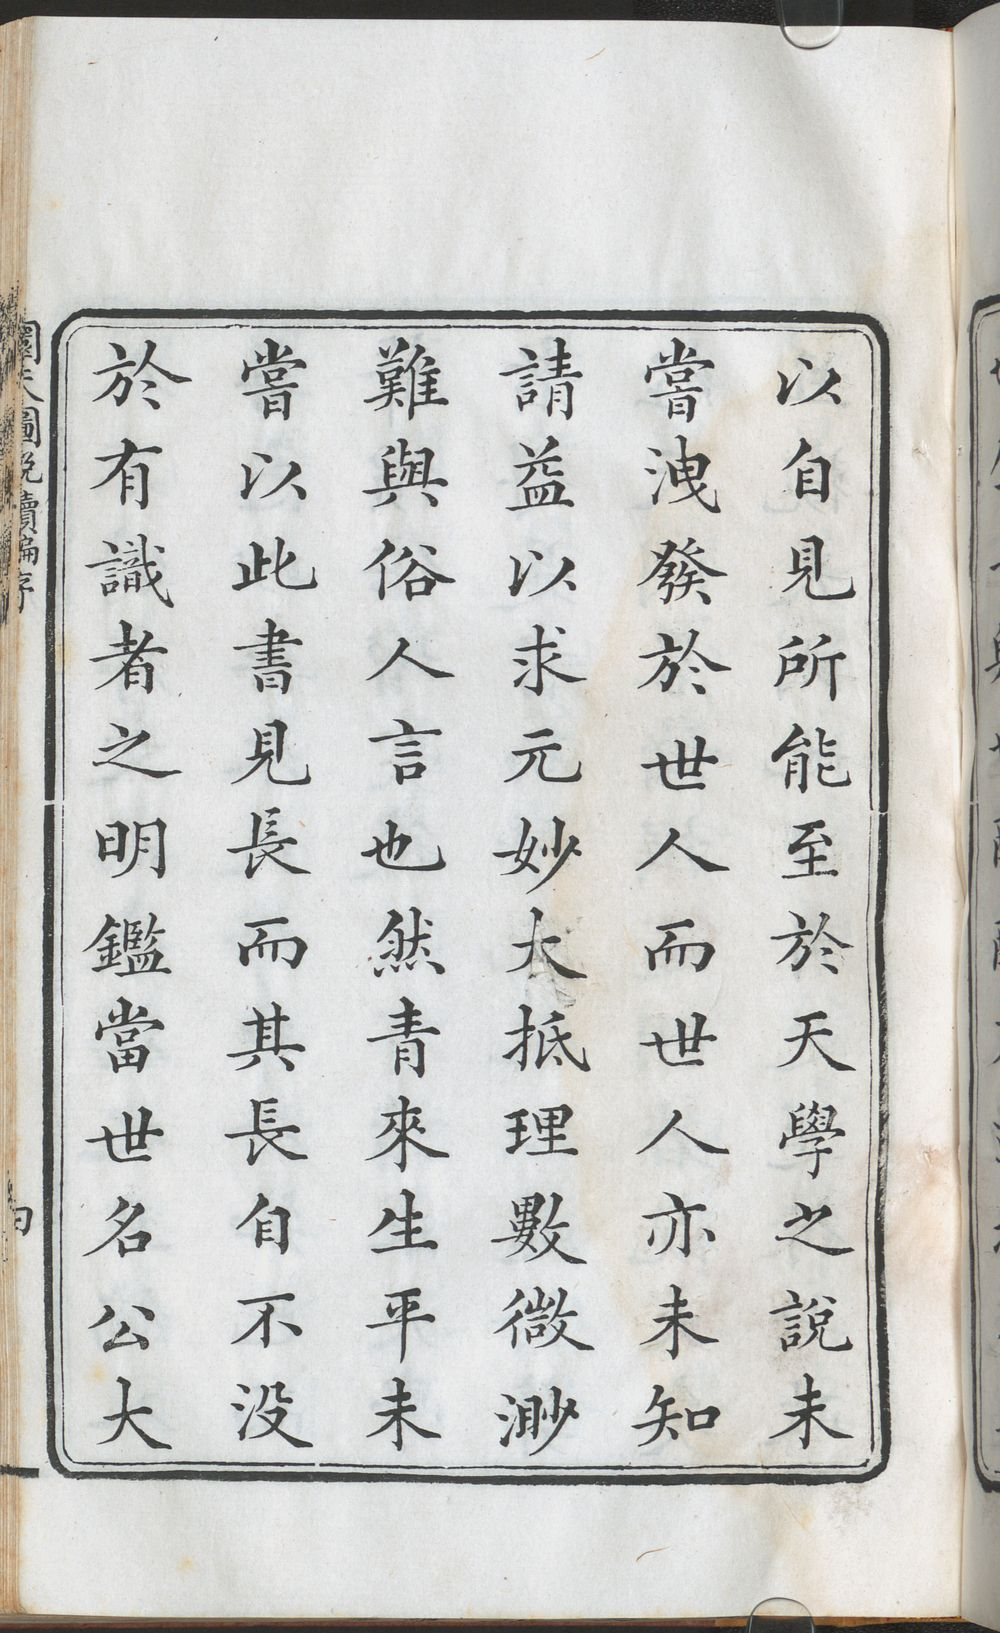 以自見所能至於天學之說未
嘗洩發於世人而世人亦未知
請益以求元妙大抵理數微渺
難與俗人言也然青來生平未
嘗以此書見長而其長自不没
於有識者之明鑑當世名公大
圜天圖說續編序